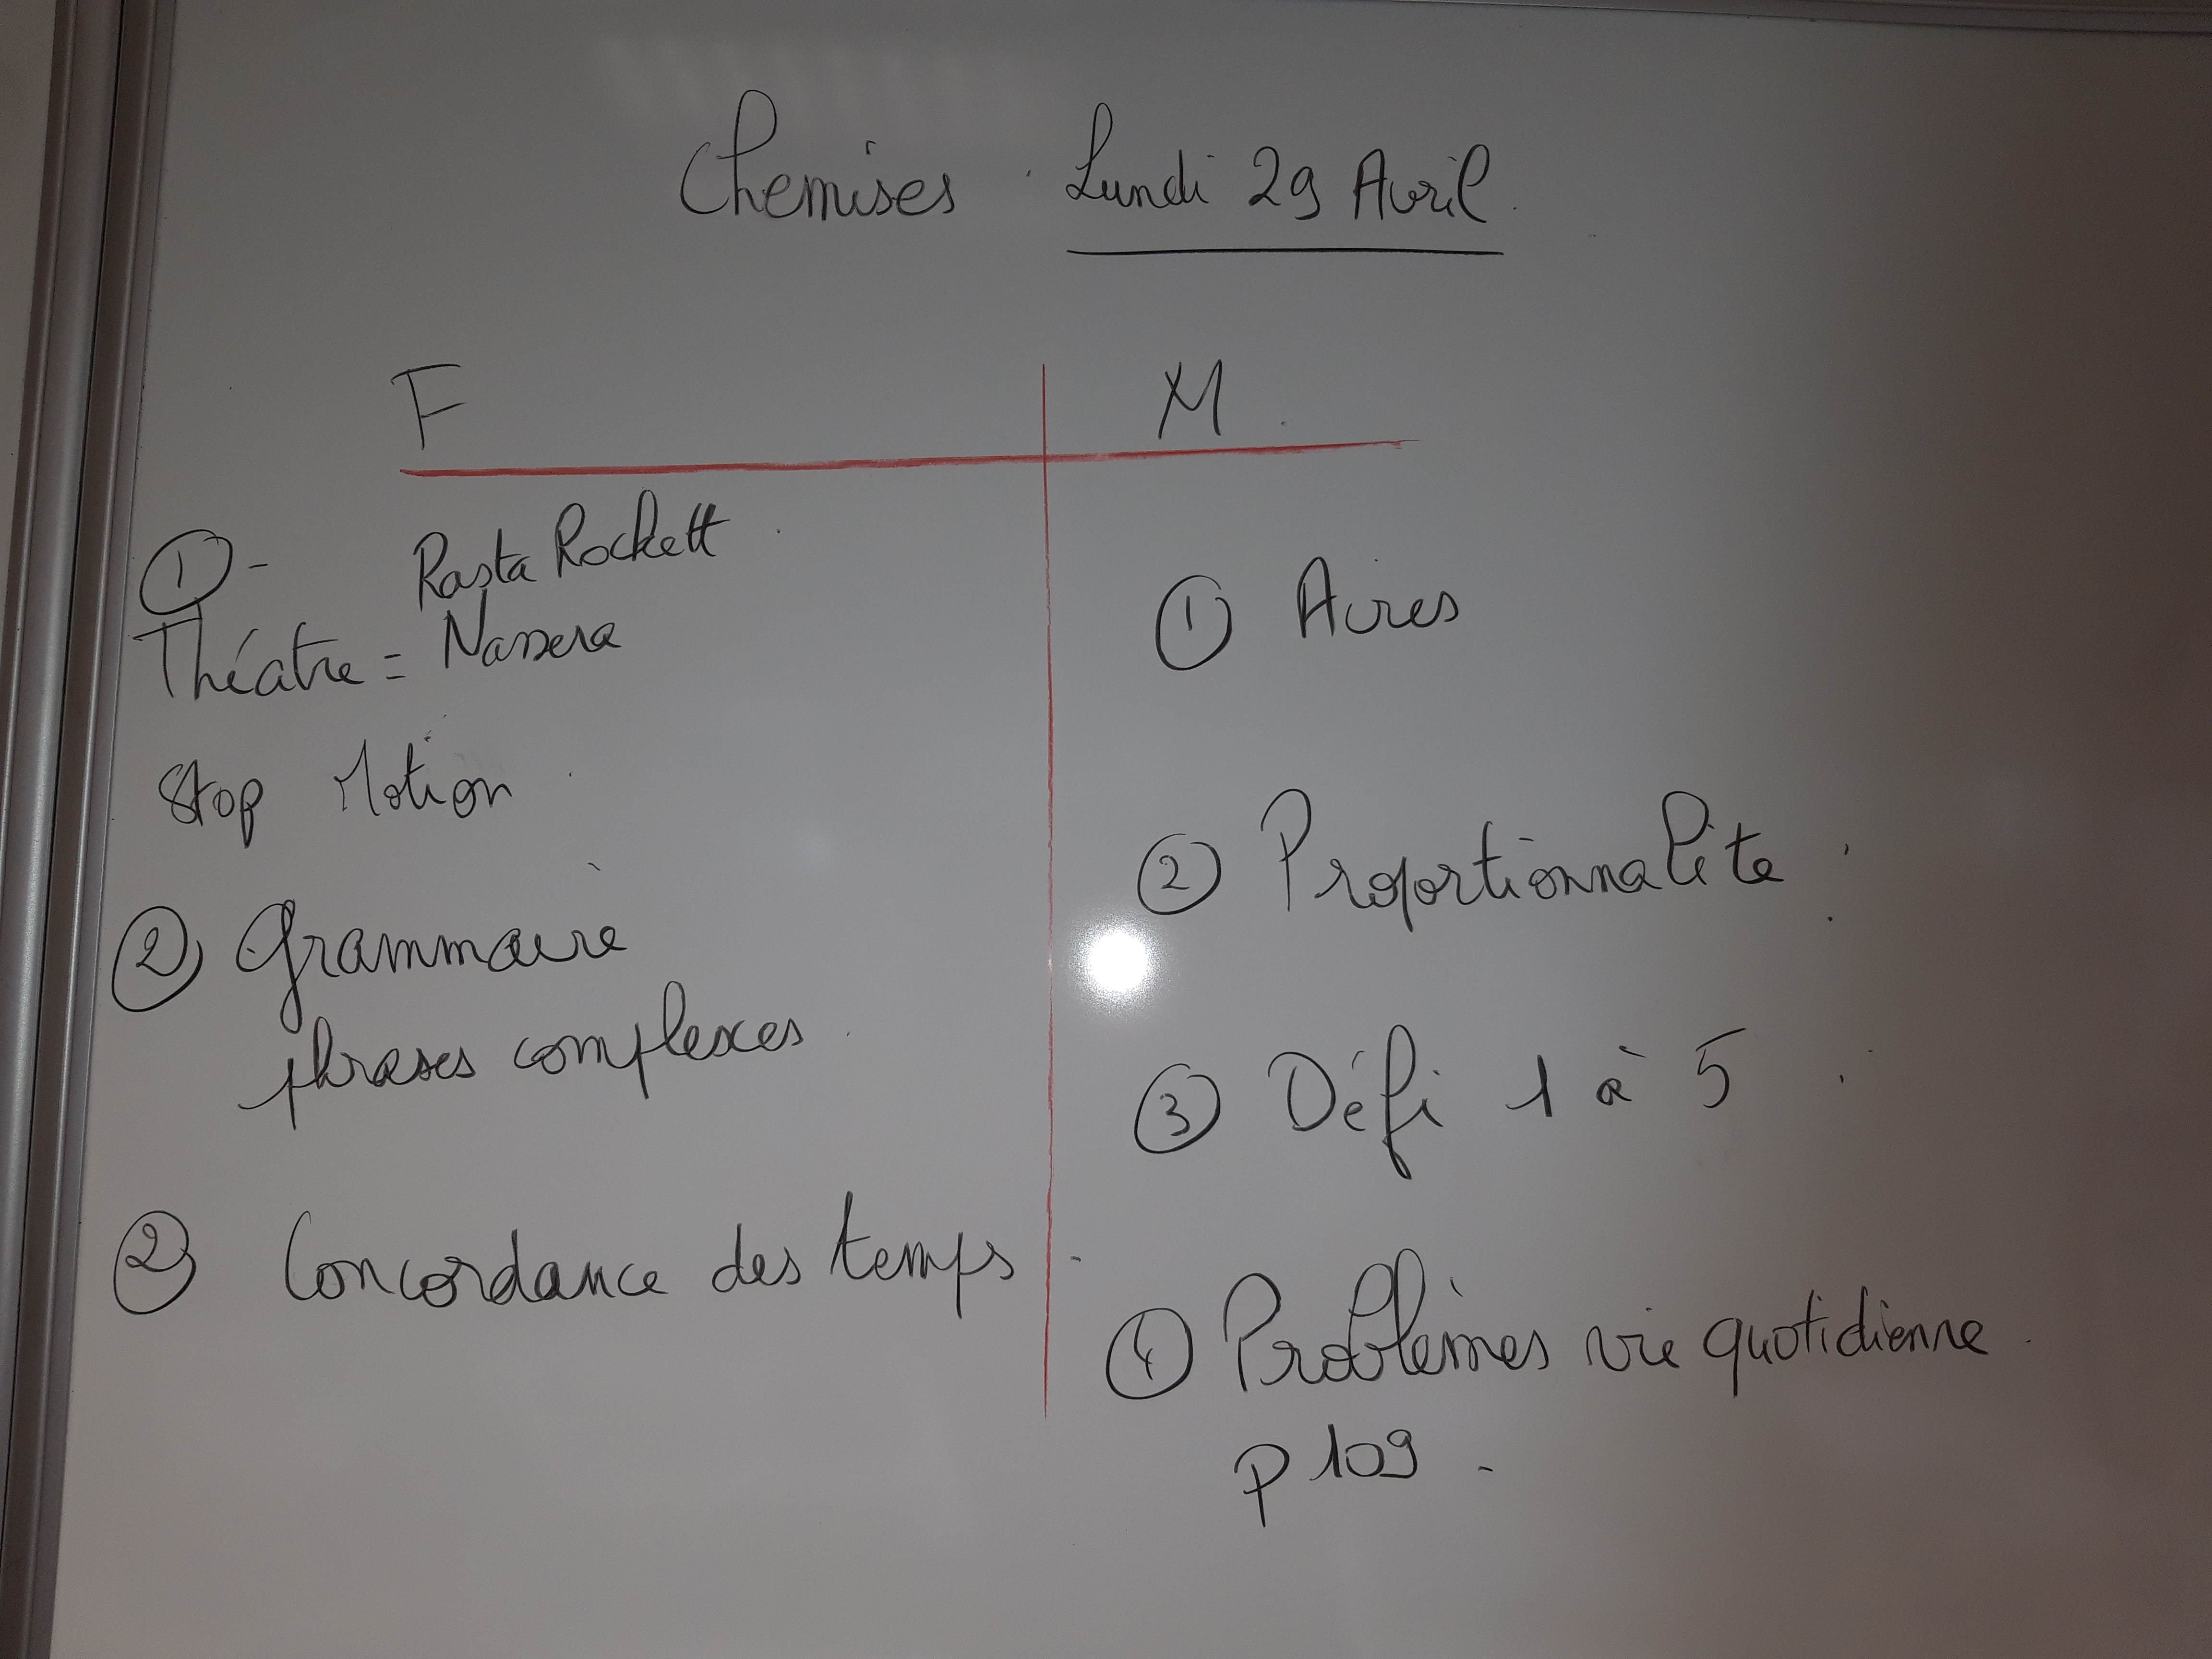 Chemises Lundi 29 Avril
F
① - Rasta Rockett
Théatre = Nassera
Stop Motion
② Grammaire
phrases complexes
② Concordance des temps
M
① Aires
② Proportionnalite
③ Défi 1 à 5
④ Problèmes vie quotidienne
p 109